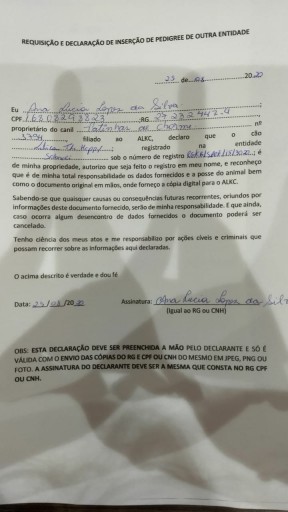 REQUISIÇÃO E DECLARAÇÃO DE INSERÇÃO DE PEDIGREE DE OUTRA ENTIDADE
23 de 20 20
Eu Ana Lucia Lopes da Silva
CPF RG
proprietário do canil Patinhas nº
filiado ao ALKC, declaro que o cão
registrado na entidade
sob o número de registro é
de minha propriedade, autorizo que seja feito o registro em meu nome, e reconheço
que é de minha total responsabilidade os dados fornecidos e a posse do animal bem
como o documento original em mãos, onde forneço a cópia digital para o ALKC.
Sabendo-se que quaisquer causas ou consequências futuras recorrentes, oriundos por
informações deste documento fornecido, serão de minha responsabilidade. E que ainda,
caso ocorra algum desencontro de dados fornecidos o documento poderá ser
cancelado.
Tenho ciência dos meus atos e me responsabilizo por ações cíveis e criminais que
possam recorrer sobre as informações aqui declaradas.
O acima descrito é verdade e dou fé.
Data: /20 20 Assinatura: Ana Lucia Lopes da Silva
(Igual ao RG ou CNH)
OBS: ESTA DECLARAÇÃO DEVE SER PREENCHIDA A MÃO PELO DECLARANTE E SÓ É
VÁLIDA COM O ENVIO DAS CÓPIAS DO RG E CPF OU CNH DO MESMO EM JPEG, PNG OU
FOTO. A ASSINATURA DO DECLARANTE DEVE SER A MESMA QUE CONSTA NO RG CPF
OU CNH.